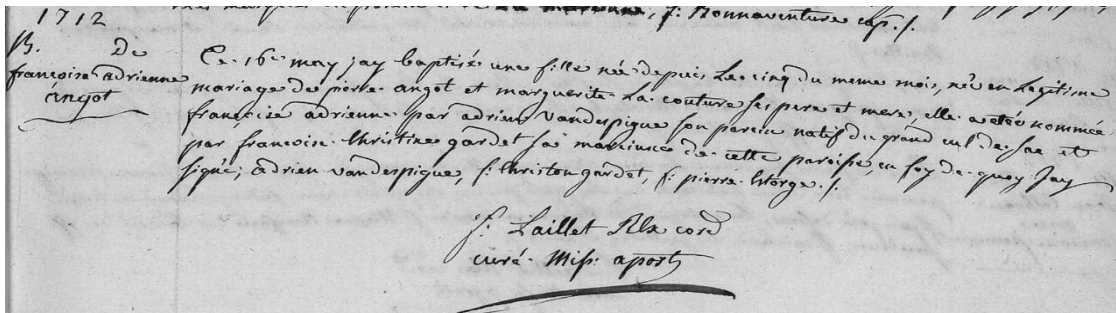 1712
, f. Bonnaventure cap. f.
B. De
françoise adrienne
angot
Ce 16e may jay baptisé une fille née depuis le cinq du meme mois, née en Legitime
mariage de pierre angot et marguerite La couture ses pere et mere, elle a eté nommée
françoise adrienne par adrien Vandespigue son parein natif du grand cul de sac et
par françoise Christine gardet sa mareinne de cette paroisse, en foy de quoy jay
signé; adrien vandespigue, f. Christon gardet, f. pierre . f.
f. Laillet Rlx cord
curé. Miss. apost